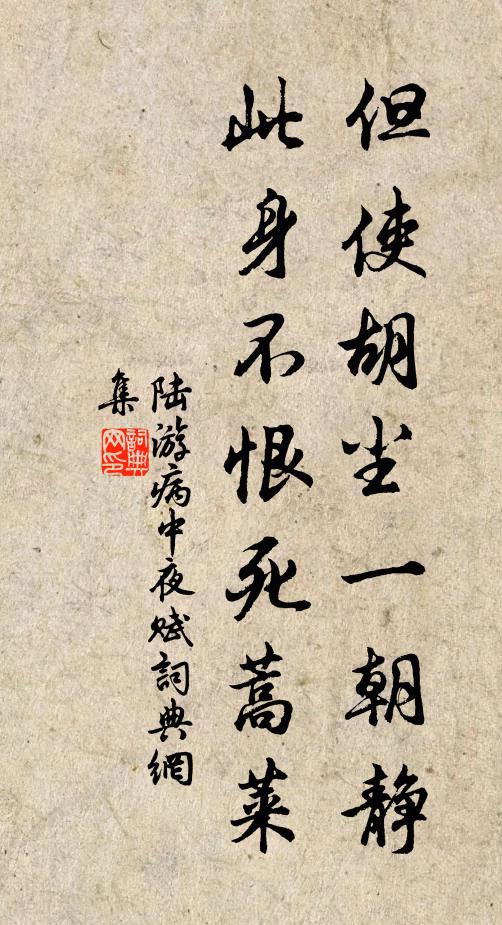 但使胡尘一朝静
此身不恨死蒿莱
陆游病中夜赋詞典網
集
詞典
网印